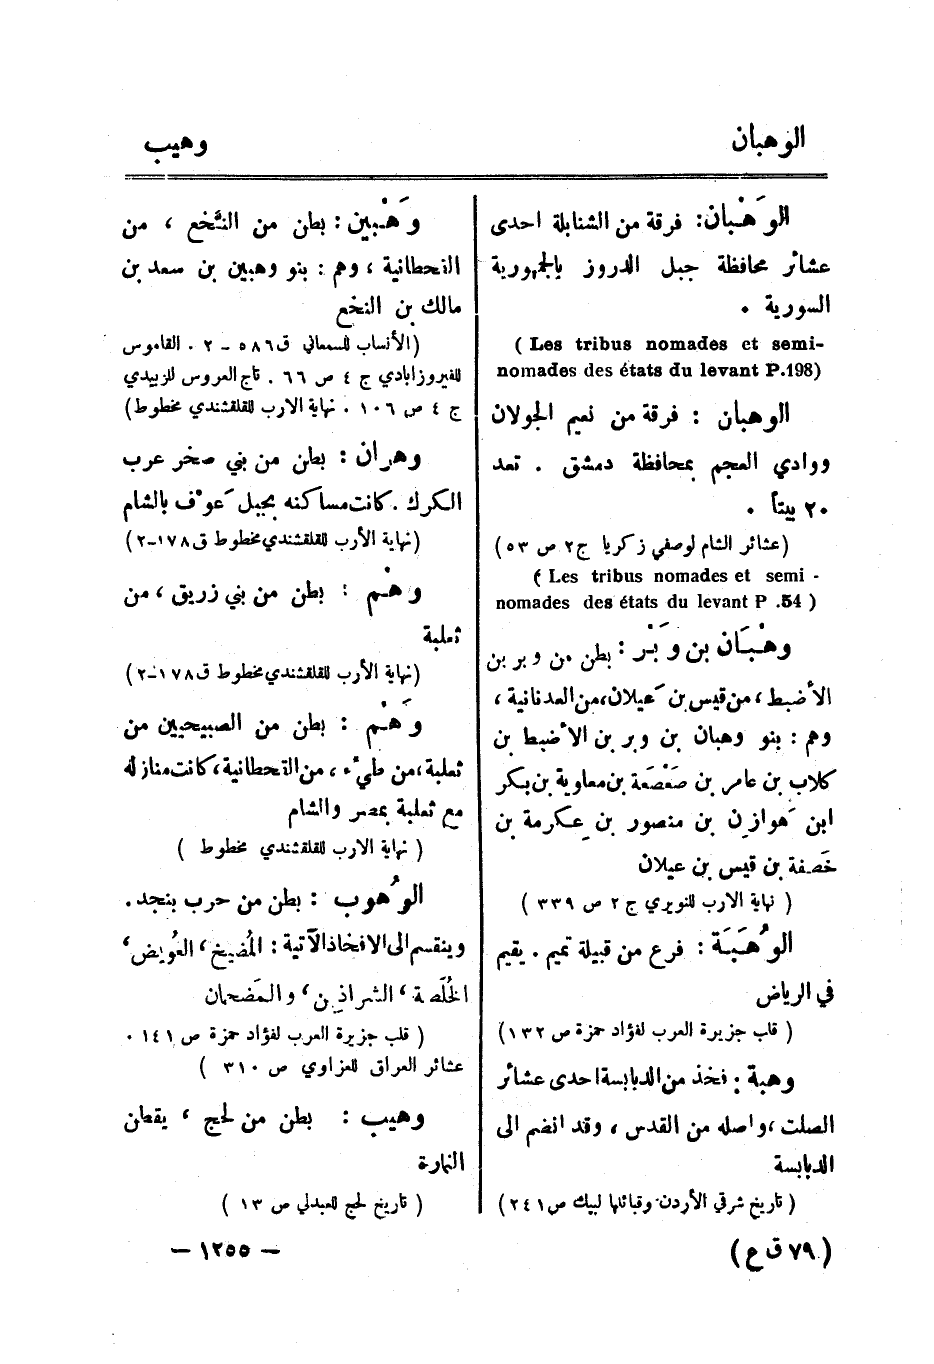 الوهبان
وهيب
الوَهْبان: فرقة من الشنابلة احدى
عشائر محافظة جبل الدروز بالجمهورية
السورية .
( Les tribus nomades et semi-
nomades des états du levant P.198)
الوهبان : فرقة من نعيم الجولان
ووادي العجم بمحافظة دمشق . تعد
٢٠ بيتاً .
(عشائر الشام لوصفي زكريا ج٢ ص ٥٣)
( Les tribus nomades et semi -
nomades des états du levant P .54 )
وهْبَان بن وَبَْر : بطن من وبر بن
الأضبط ، من قيس بن عَيلان، من العدنانية ،
وهم : بنو وهبان بن وبر بن الأضبط بن
كلاب بن عامر بن صَعْصَعة بن معاوية بن بكر
ابن هَوازِن بن منصور بن عِكرمة بن
خَصفة بن قيس بن عيلان
( نهاية الارب للنويري ج ٢ ص ٣٣٩ )
الوُهَبَة : فرع من قبيلة تميم . يقيم
في الرياض
( قلب جزيرة العرب لفؤاد حمزة ص ١٣٢)
وهبة : فخذ من الدبابسة احدى عشائر
الصلت ، واصله من القدس ، وقد انضم الى
الدبابسة
( تاريخ شرقي الأردن وقبائلها لبيك ص ٢٤١)
وَهْبين : بطن من النَّخع ، من
القحطانية ، وهم : بنو وهبين بن سعد بن
مالك بن النخع
(الأنساب للسمعاني ق ٥٨٦ - ٢ . القاموس
للفيروزابادي ج ٤ ص ٦٦ . تاج العروس للزبيدي
ج ٤ ص ١٠٦ . نهاية الارب للقلقشندي مخطوط)
وهران : بطن من بني صخر عرب
الكرك . كانت مساكنه بجبل عَوْف بالشام
(نهاية الأرب للقلقشندي مخطوط ق ١٧٨-٢)
وهْم : بطن من بني زريق ، من
ثعلبة
(نهاية الأرب للقلقشندي مخطوط ق ١٧٨-٢)
وَهْم : بطن من الصبيحيين من
ثعلبة، من طيء ، من القحطانية، كانت منازله
مع ثعلبة بمصر والشام
( نهاية الارب للقلقشندي مخطوط )
الوُهوب : بطن من حرب بنجد .
وينقسم الى الافخاذ الآتية : المُضَيخ ، العُويض ،
الخُلَصة ، الشراذين ، والمَضحان
( قلب جزيرة العرب لفؤاد حمزة ص ١٤١ .
عشائر العراق للعزاوي ص ٣١٠ )
وهيب : بطن من لحج ، يقطن
النمارة
( تاريخ لحج للعبدلي ص ١٣ )
(٧٩ ق ع)
— ١٢٥٥ —